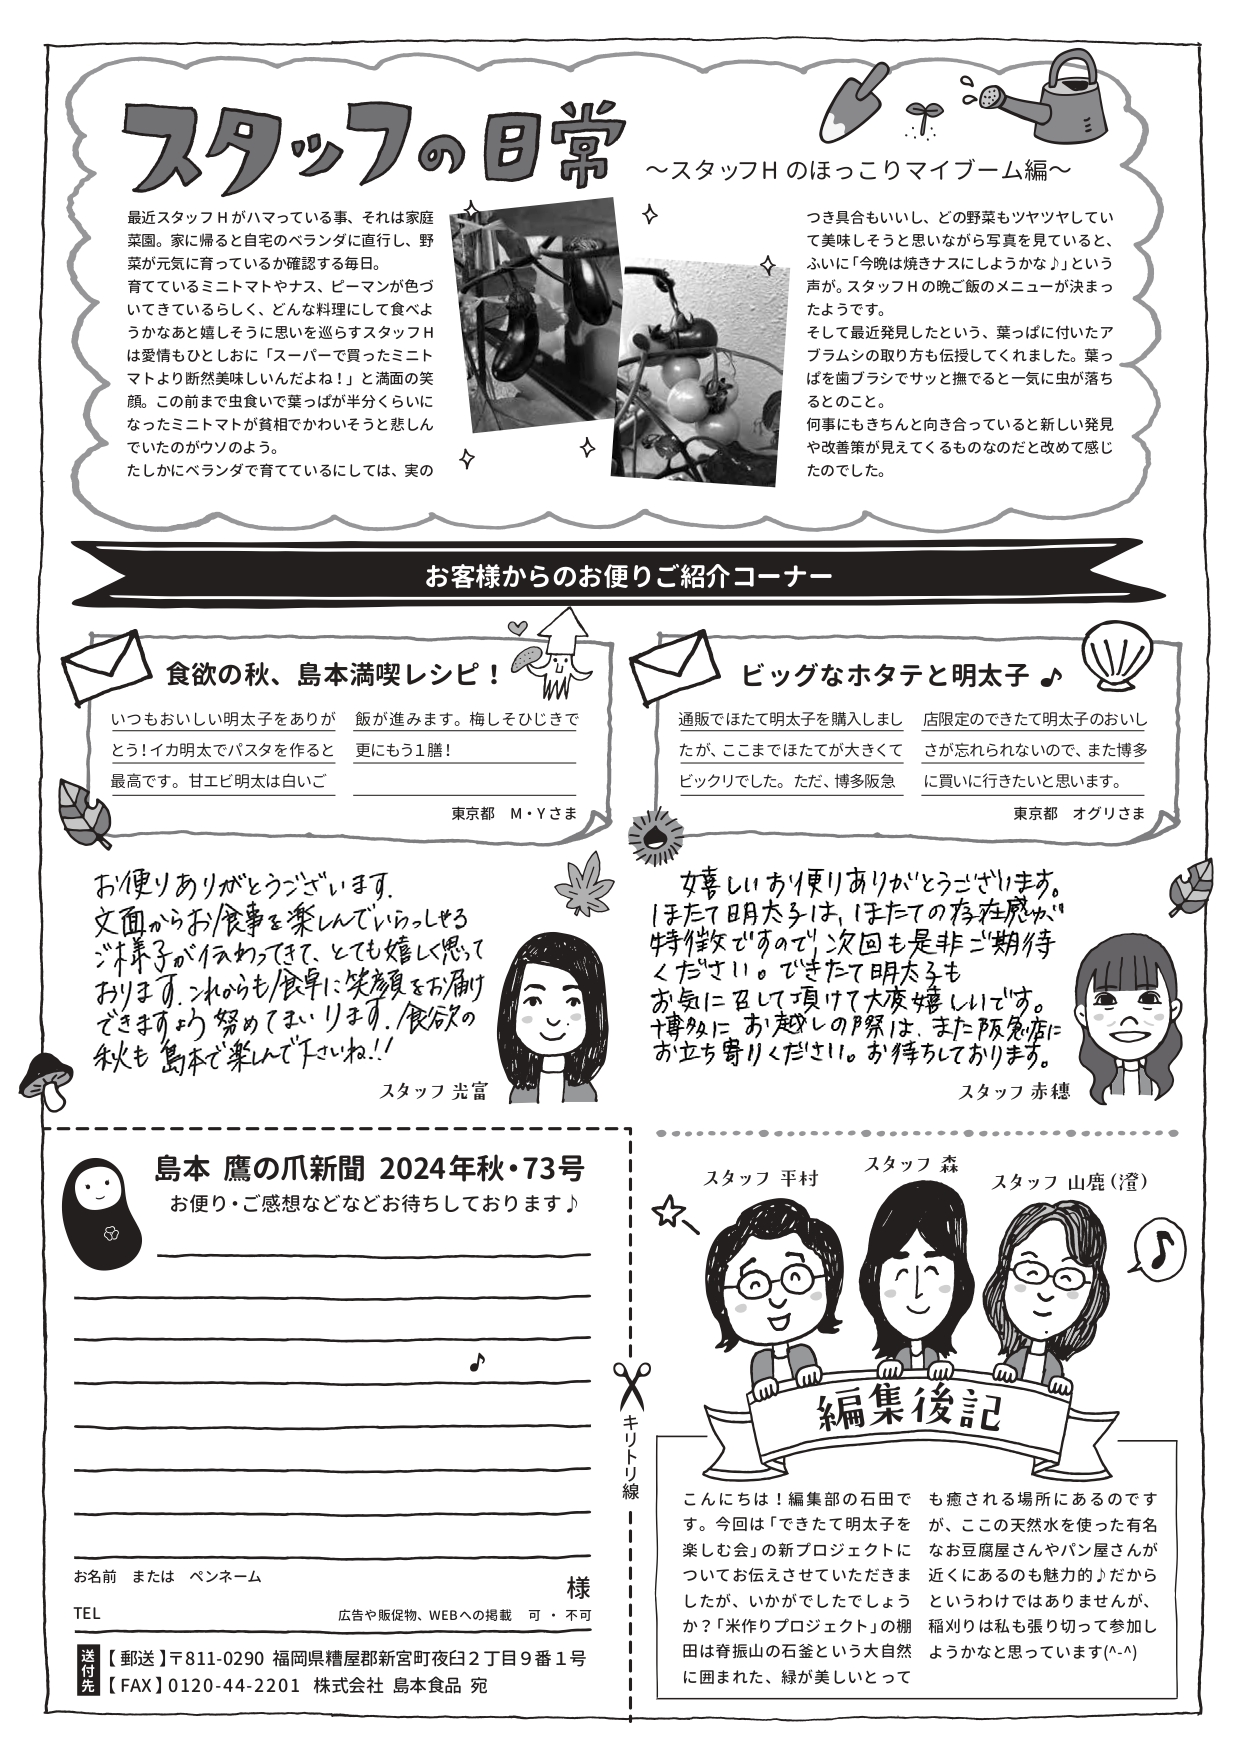 スタッフの日常
〜スタッフHのほっこりマイブーム編〜
最近スタッフHがハマっている事、それは家庭
菜園。家に帰ると自宅のベランダに直行し、野
菜が元気に育っているか確認する毎日。
育てているミニトマトやナス、ピーマンが色づ
いてきているらしく、どんな料理にして食べよ
うかなあと嬉しそうに思いを巡らすスタッフH
は愛情もひとしおに「スーパーで買ったミニト
マトより断然美味しいんだよね！」と満面の笑
顔。この前まで虫食いで葉っぱが半分くらいに
なったミニトマトが貧相でかわいそうと悲しん
でいたのがウソのよう。
たしかにベランダで育てているにしては、実の
つき具合もいいし、どの野菜もツヤツヤしてい
て美味しそうと思いながら写真を見ていると、
ふいに「今晩は焼きナスにしようかな♪」という
声が。スタッフHの晩ご飯のメニューが決まっ
たようです。
そして最近発見したという、葉っぱに付いたア
ブラムシの取り方も伝授してくれました。葉っ
ぱを歯ブラシでサッと撫でると一気に虫が落ち
るとのこと。
何事にもきちんと向き合っていると新しい発見
や改善策が見えてくるものなのだと改めて感じ
たのでした。
お客様からのお便りご紹介コーナー
食欲の秋、島本満喫レシピ！
いつもおいしい明太子をありが
とう！イカ明太でパスタを作ると
最高です。甘エビ明太は白いご
飯が進みます。梅しそひじきで
更にもう１膳！
東京都　M・Yさま
ビッグなホタテと明太子♪
通販でほたて明太子を購入しまし
たが、ここまでほたてが大きくて
ビックリでした。ただ、博多阪急
店限定のできたて明太子のおいし
さが忘れられないので、また博多
に買いに行きたいと思います。
東京都　オグリさま
お便りありがとうございます。
文面からお食事を楽しんでいらっしゃる
ご様子が伝わってきて、とても嬉しく思って
おります。これからも食卓に笑顔をお届け
できますよう努めてまいります。食欲の
秋も島本で楽しんで下さいね!!
スタッフ 光富
嬉しいお便りありがとうございます。
ほたて明太子は、ほたての存在感が
特徴ですので、次回も是非ご期待
ください。できたて明太子も
お気に召して頂けて大変嬉しいです。
博多にお越しの際は、また阪急店に
お立ち寄りください。お待ちしております。
スタッフ 赤穗
島本 鷹の爪新聞 2024年秋・73号
お便り・ご感想などなどお待ちしております♪
お名前　または　ペンネーム
様
TEL
広告や販促物、WEBへの掲載　可 ・ 不可
送付先
【郵送】〒811-0290 福岡県糟屋郡新宮町夜臼２丁目９番１号
【FAX】0120-44-2201 株式会社 島本食品 宛
キリトリ線
スタッフ 平村
スタッフ 森
スタッフ 山鹿(澄)
編集後記
こんにちは！編集部の石田で
す。今回は「できたて明太子を
楽しむ会」の新プロジェクトに
ついてお伝えさせていただきま
したが、いかがでしたでしょう
か？「米作りプロジェクト」の棚
田は脊振山の石釜という大自然
に囲まれた、緑が美しいとって
も癒される場所にあるのです
が、ここの天然水を使った有名
なお豆腐屋さんやパン屋さんが
近くにあるのも魅力的♪だから
というわけではありませんが、
稲刈りは私も張り切って参加し
ようかなと思っています(^-^)